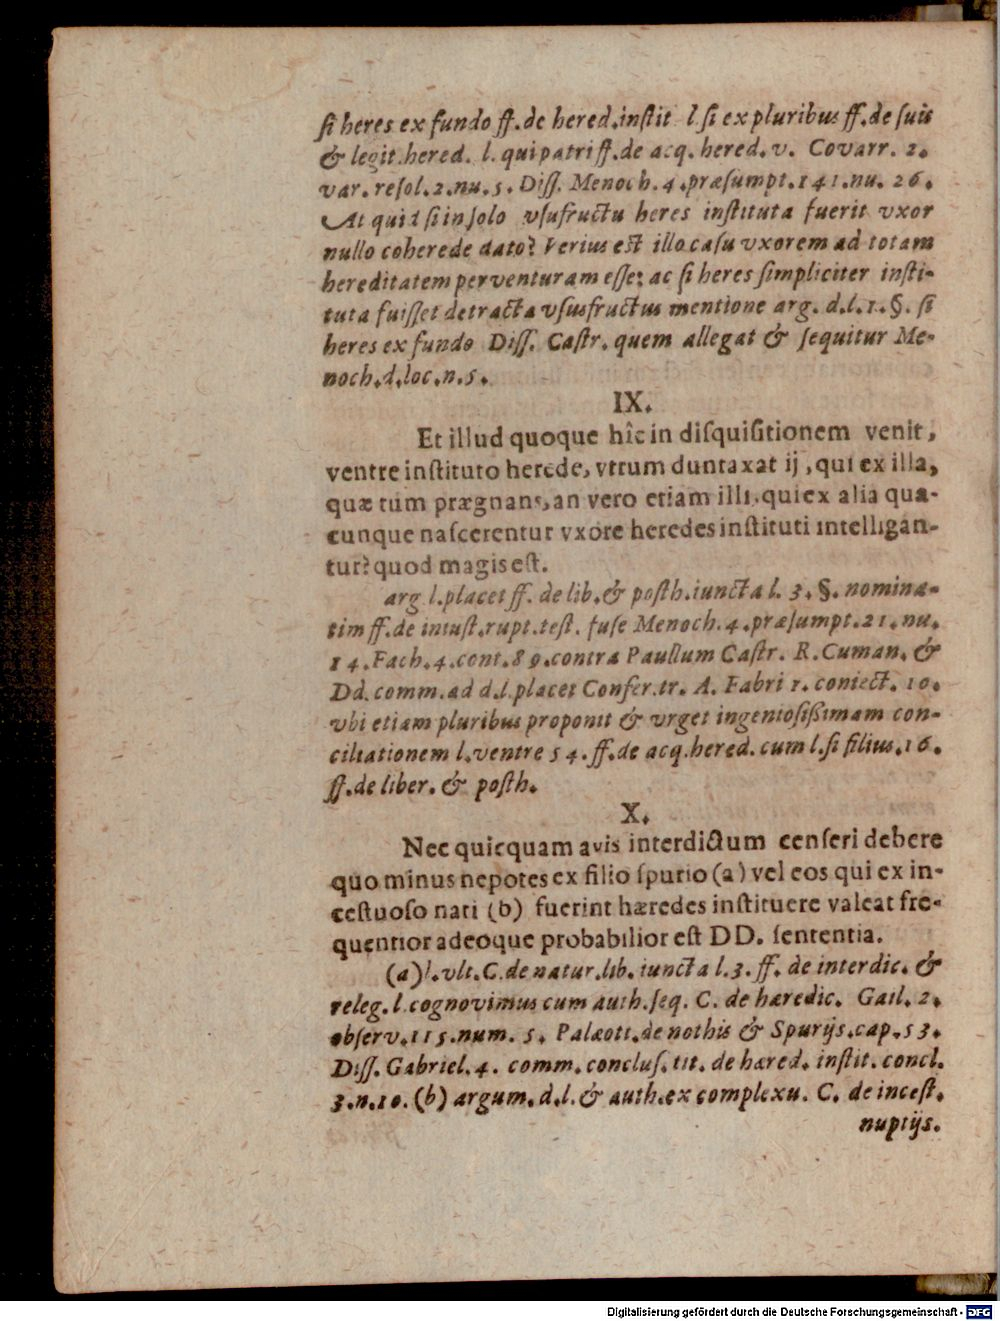 ſi heres ex fundo ff. de hered. inſtit. l. ſi ex pluribus ff. de ſuis
& legit. hered. l. qui patri ff. de acq. hered. v. Covarr. 2.
var. reſol. 2. nu. 5. Diſſ. Menoch. 4. præſumpt. 141. nu. 26.
At quid ſi in ſolo vſufructu heres inſtituta fuerit vxor
nullo coherede dato? Verius est illo caſu vxorem ad totam
hereditatem perventuram eſſe; ac ſi heres ſimpliciter inſti-
tuta fuiſſet detracta vſusfructus mentione arg. d. l. 1. §. ſi
heres ex fundo Diſſ. Caſtr. quem allegat & ſequitur Me-
noch. d. loc. n. 5.
IX.
Et illud quoque hîc in diſquiſitionem venit,
ventre inſtituto herede, vtrum duntaxat ij, qui ex illa,
quæ tum prægnans, an vero etiam illi, qui ex alia qua-
cunque naſcerentur vxore heredes inſtituti intelligan-
tur? quod magis eſt.
arg l. placet ff. de lib. & poſth. iuncta l. 3. §. nomina-
tim ff. de iniuſt. rupt. teſt. fuſe Menoch. 4. præſumpt. 21. nu.
14. Fach. 4. cont. 89. contra Paullum Caſtr. R. Cuman. &
Dd. comm. ad d. l. placet Confer. tr. A. Fabri 1. coniect. 10.
vbi etiam pluribus proponit & vrget ingenioſißimam con-
ciliationem l. ventre 54. ff. de acq. hered. cum l. ſi filius. 16.
ff. de liber. & poſth.
X.
Nec quicquam avis interdictum cenſeri debere
quo minus nepotes ex filio ſpurio (a) vel eos qui ex in-
ceſtuoſo nati (b) fuerint hæredes inſtituere valeat fre-
quentior adeoque probabilior eſt DD. ſententia.
(a) l. vlt. C. de natur. lib. iuncta l. 3. ff. de interdic. &
releg. l. cognovimus cum auth. ſeq. C. de hæredic. Gail. 2.
obſerv. 115. num. 5. Palæott. de nothis & Spurijs. cap. 53.
Diſſ. Gabriel. 4. comm. concluſ. tit. de hæred. inſtit. concl.
3. n. 10. (b) argum. d. l. & auth. ex complexu. C. de inceſt.
nuptijs.
Digitalisierung gefördert durch die Deutsche Forschungsgemeinschaft - DFG